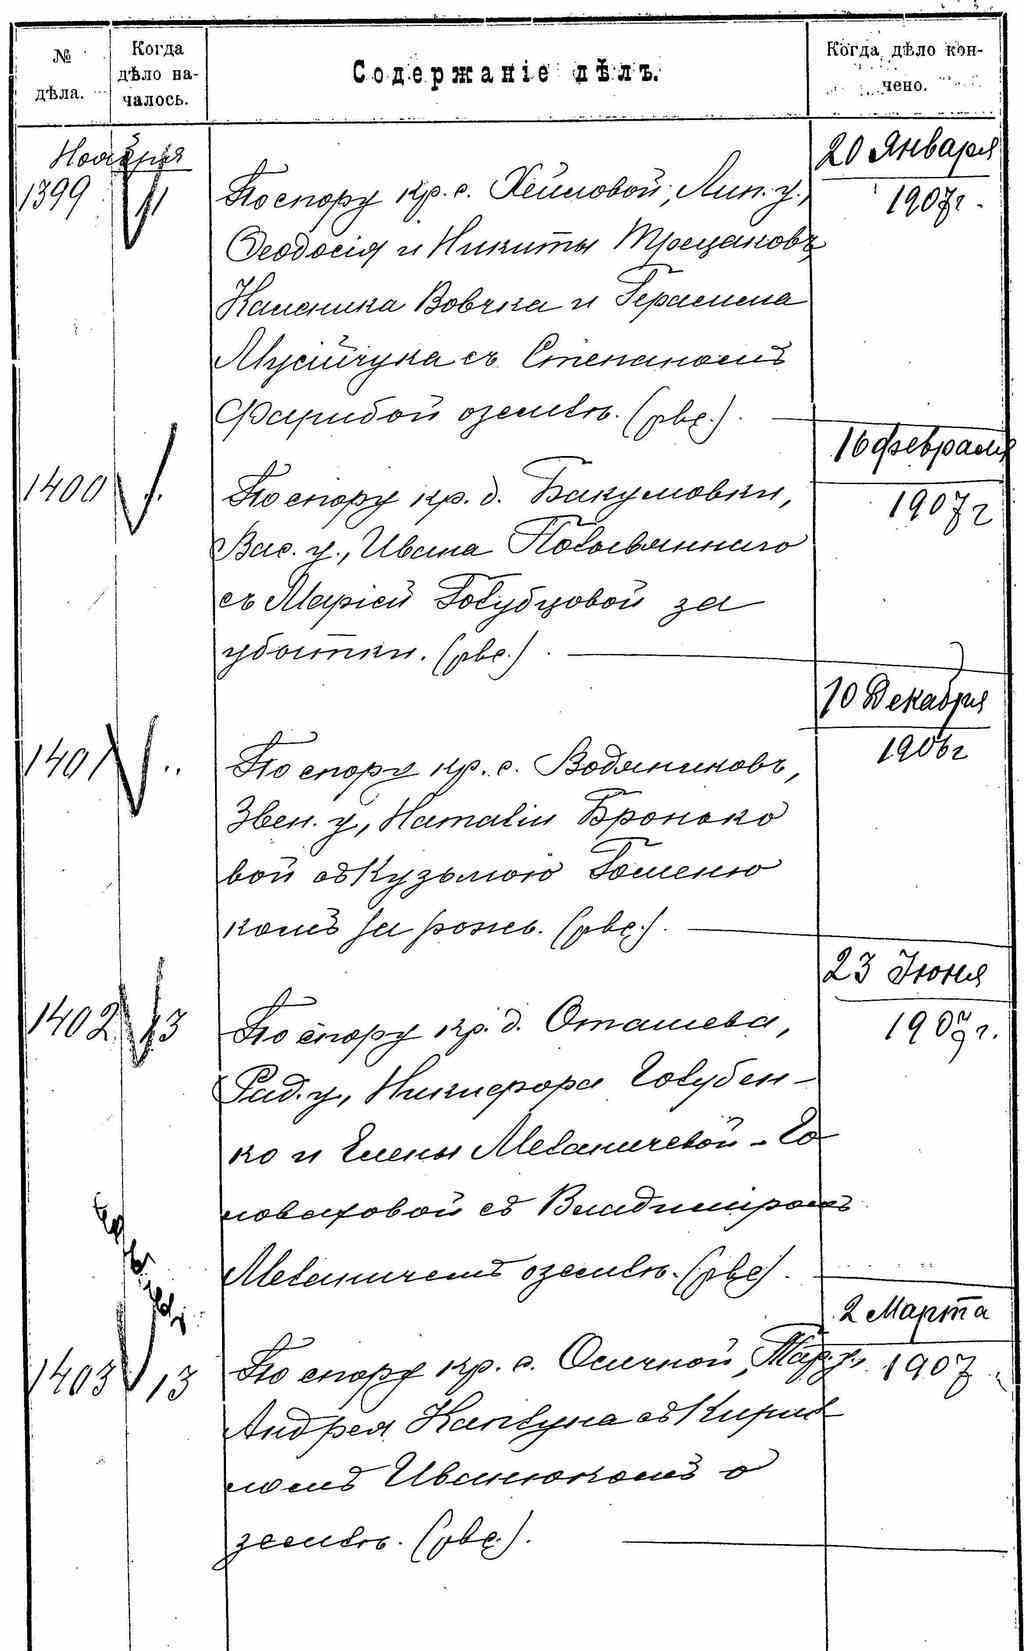 № дѣла.
Когда дѣло на-
чалось.
Содержаніе дѣлъ.
Когда дѣло кон-
чено.
Ноября
1399 11 По спору кр. с. Хейловой, Лип. у.,
Феодосія и Никиты Трецаковъ,
Калѣника Вовчка и Герасима
Мусійчука съ Степаномъ
Фарибой о землѣ. (рѣш.).
20 Января
1907 г.
1400 По спору кр. д. Бакумовки,
Вас. у., Ивана Поволяннаго
съ Маріей Голубцовой за
убытки. (рѣш.).
16 февраля
1907 г
1401 " По спору кр. с. Водяниковъ,
Звен. у., Наталіи Бронько
вой съ Кузьмою Гоменю
комъ за рожь. (рѣш.).
10 Декабря
1906 г
1402 13 По спору кр. д. Оташева,
Рад. у., Никифора Голубен-
ко и Елены Меланичевой - Го
ловаховой съ Владиміромъ
Меланичемъ о землѣ. (рѣш.).
23 Іюня
1909 г.
1403 13 По спору кр. с. Осичной, Тар. у.
Андрея Каплуна съ Кирил
ломъ Иванюкомъ о
землѣ. (рѣш.).
2 Марта
1907